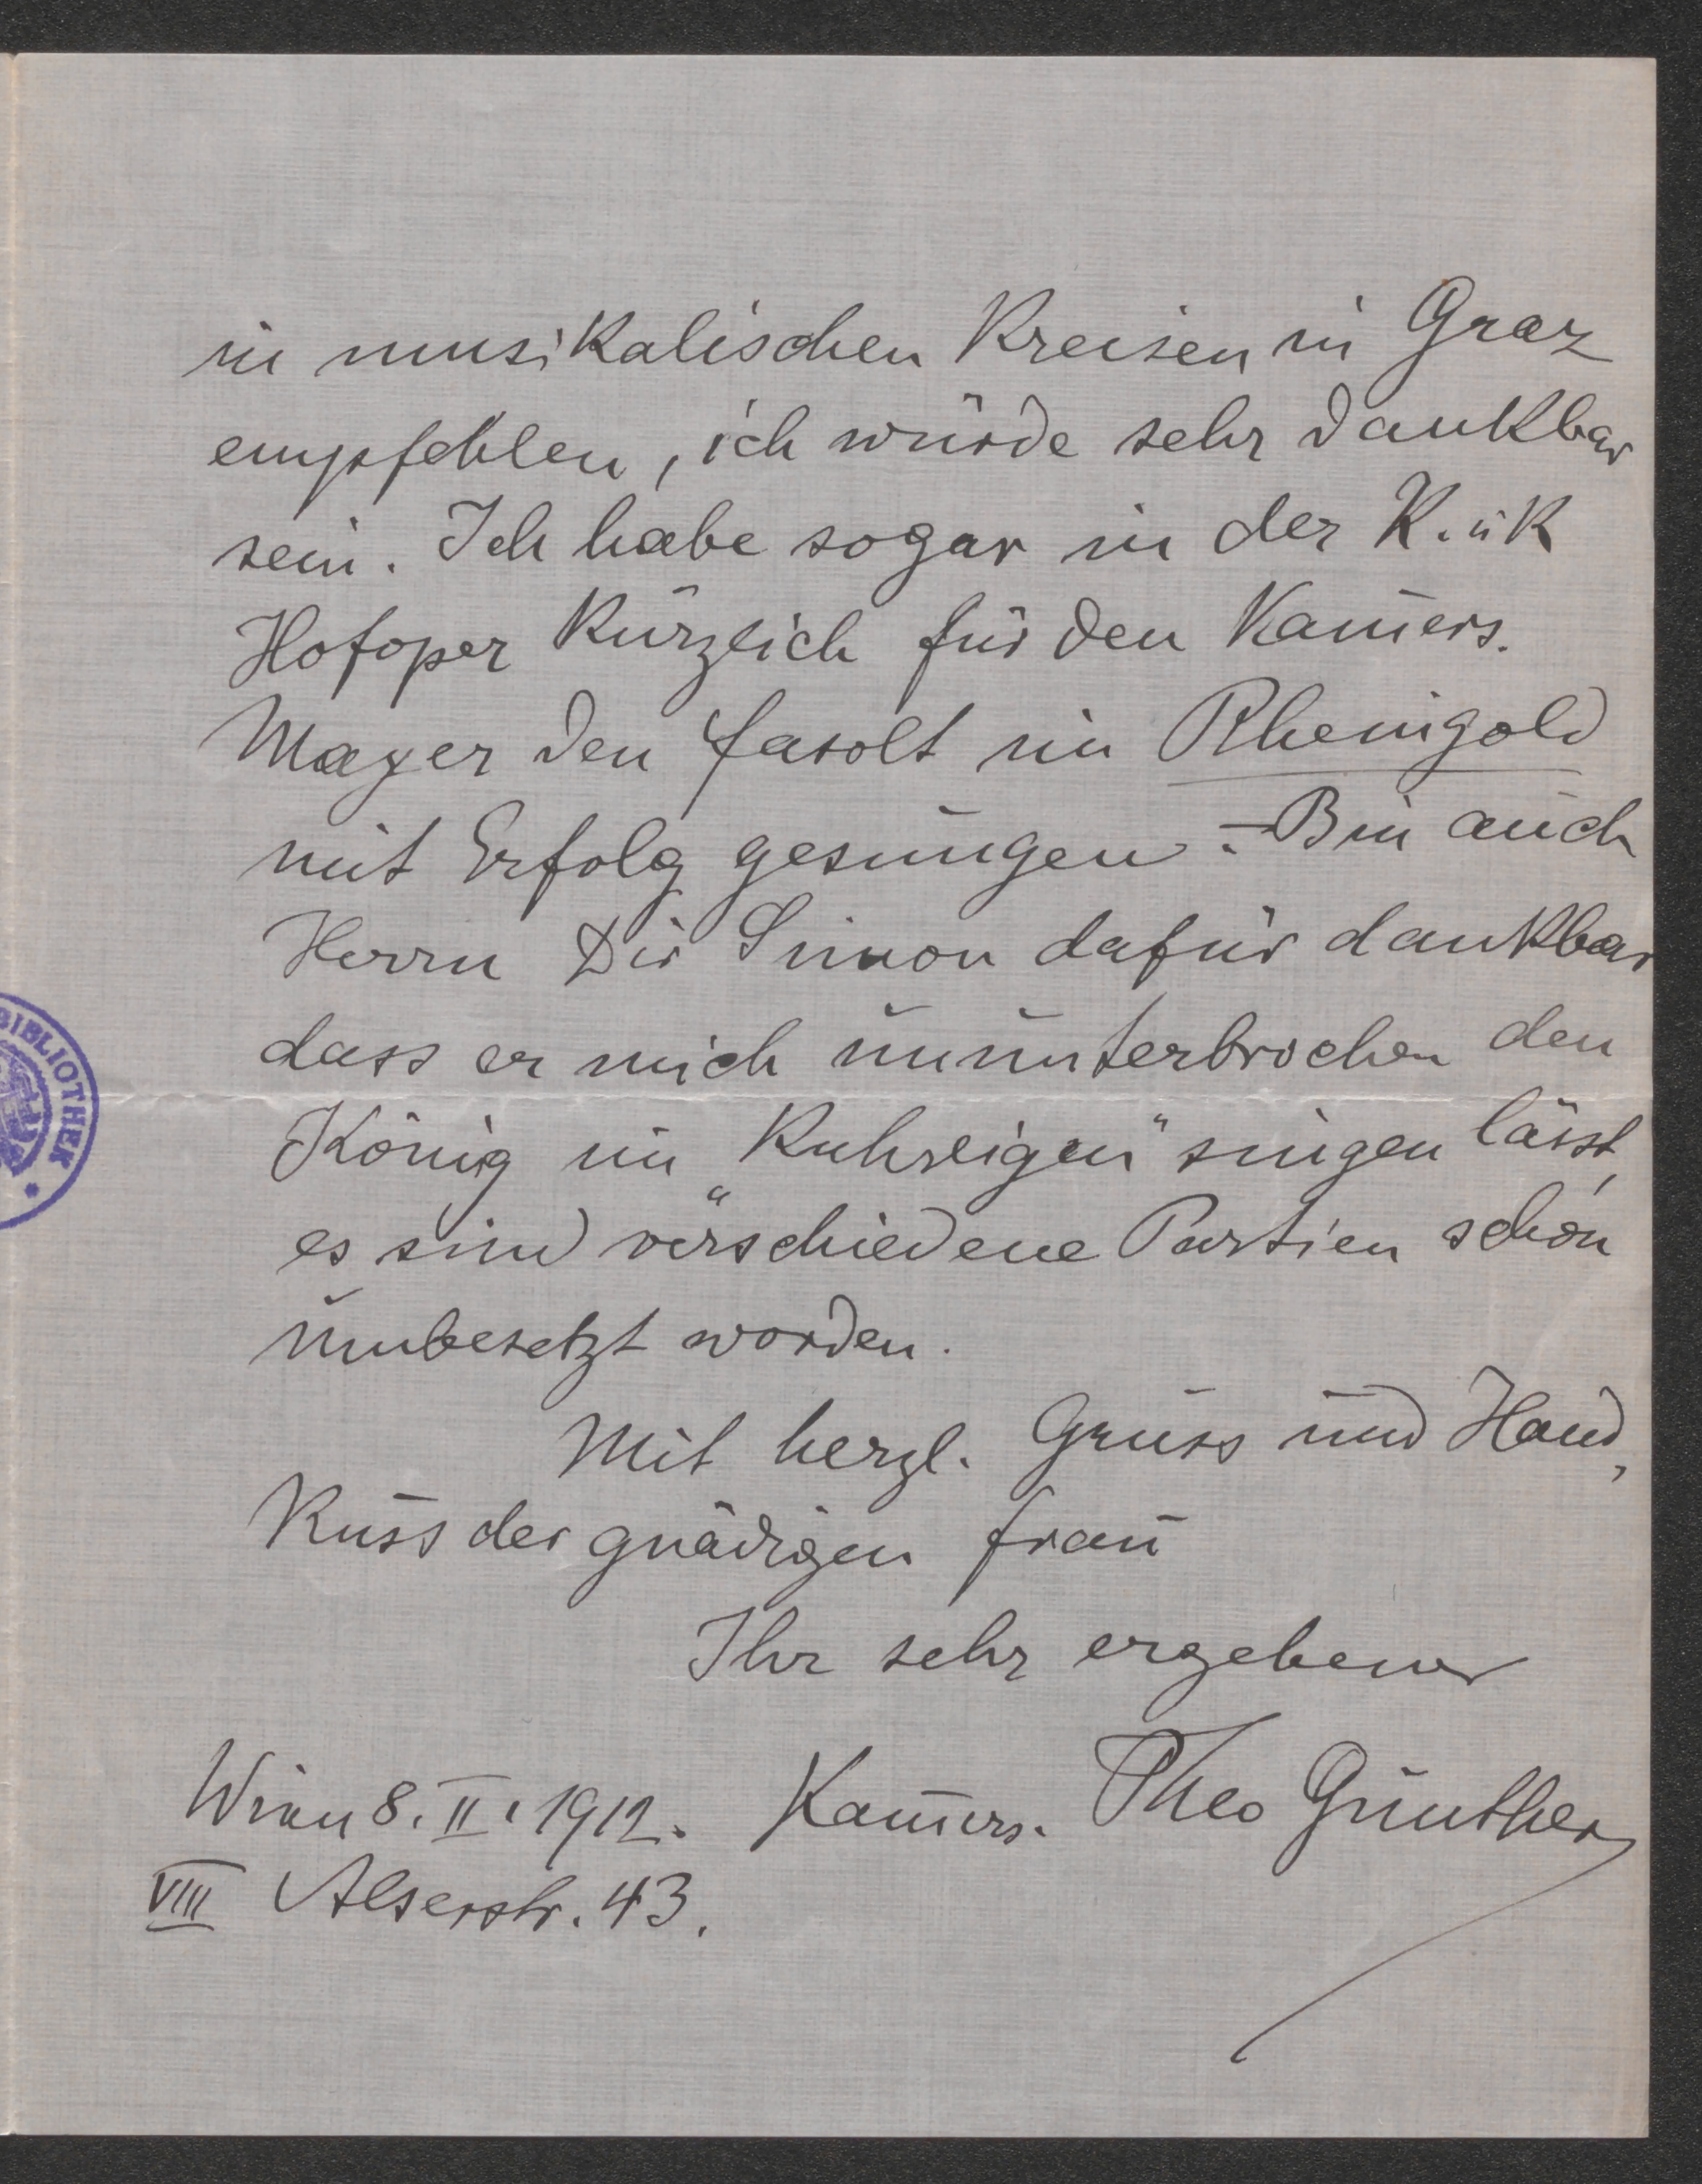 in musikalischen Kreisen in Graz
empfehlen, ich würde sehr dankbar
sein. Ich habe sogar in der K. u K
Hofoper kürzlich für den Kam̄ers.
Mayer den Fasolt im Rheingold
mit Erfolg gesungen. – Bin auch
Herrn Dir Simon dafür dankbar
dass er mich ununterbrochen den
König im „Kuhreigen" singen lässt,
es sind verschiedene Partien schon
umbesetzt worden.
Mit herzl. Gruss und Hand,
Kuss der gnädigen Frau
Ihr sehr ergebener
Wien 8. II. 1912. Kam̄ers. Theo Günther
VIII Alserstr. 43.
BIBLIOTHEK